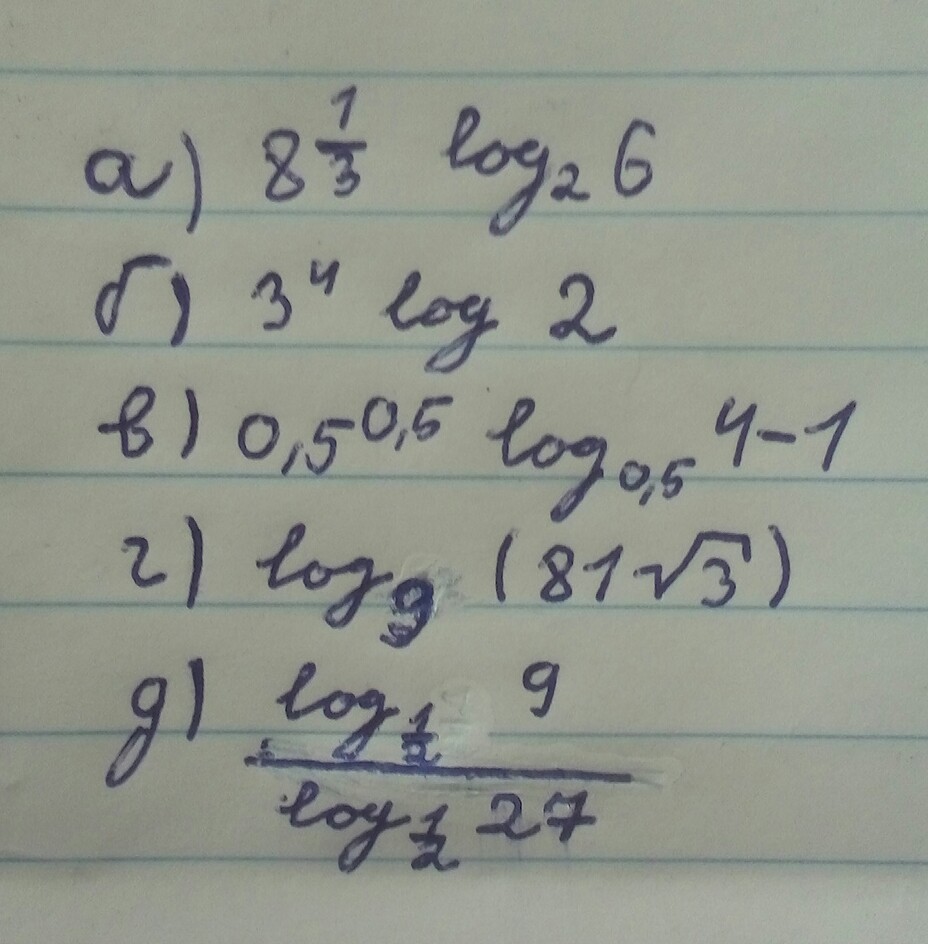 а) 8^(1/3) log₂ 6
б) 3⁴ log 2
в) 0,5^(0,5) log_(0,5) 4-1
г) log₉ (81√3)
д) log_(1/2) 9
log_(1/2) 27